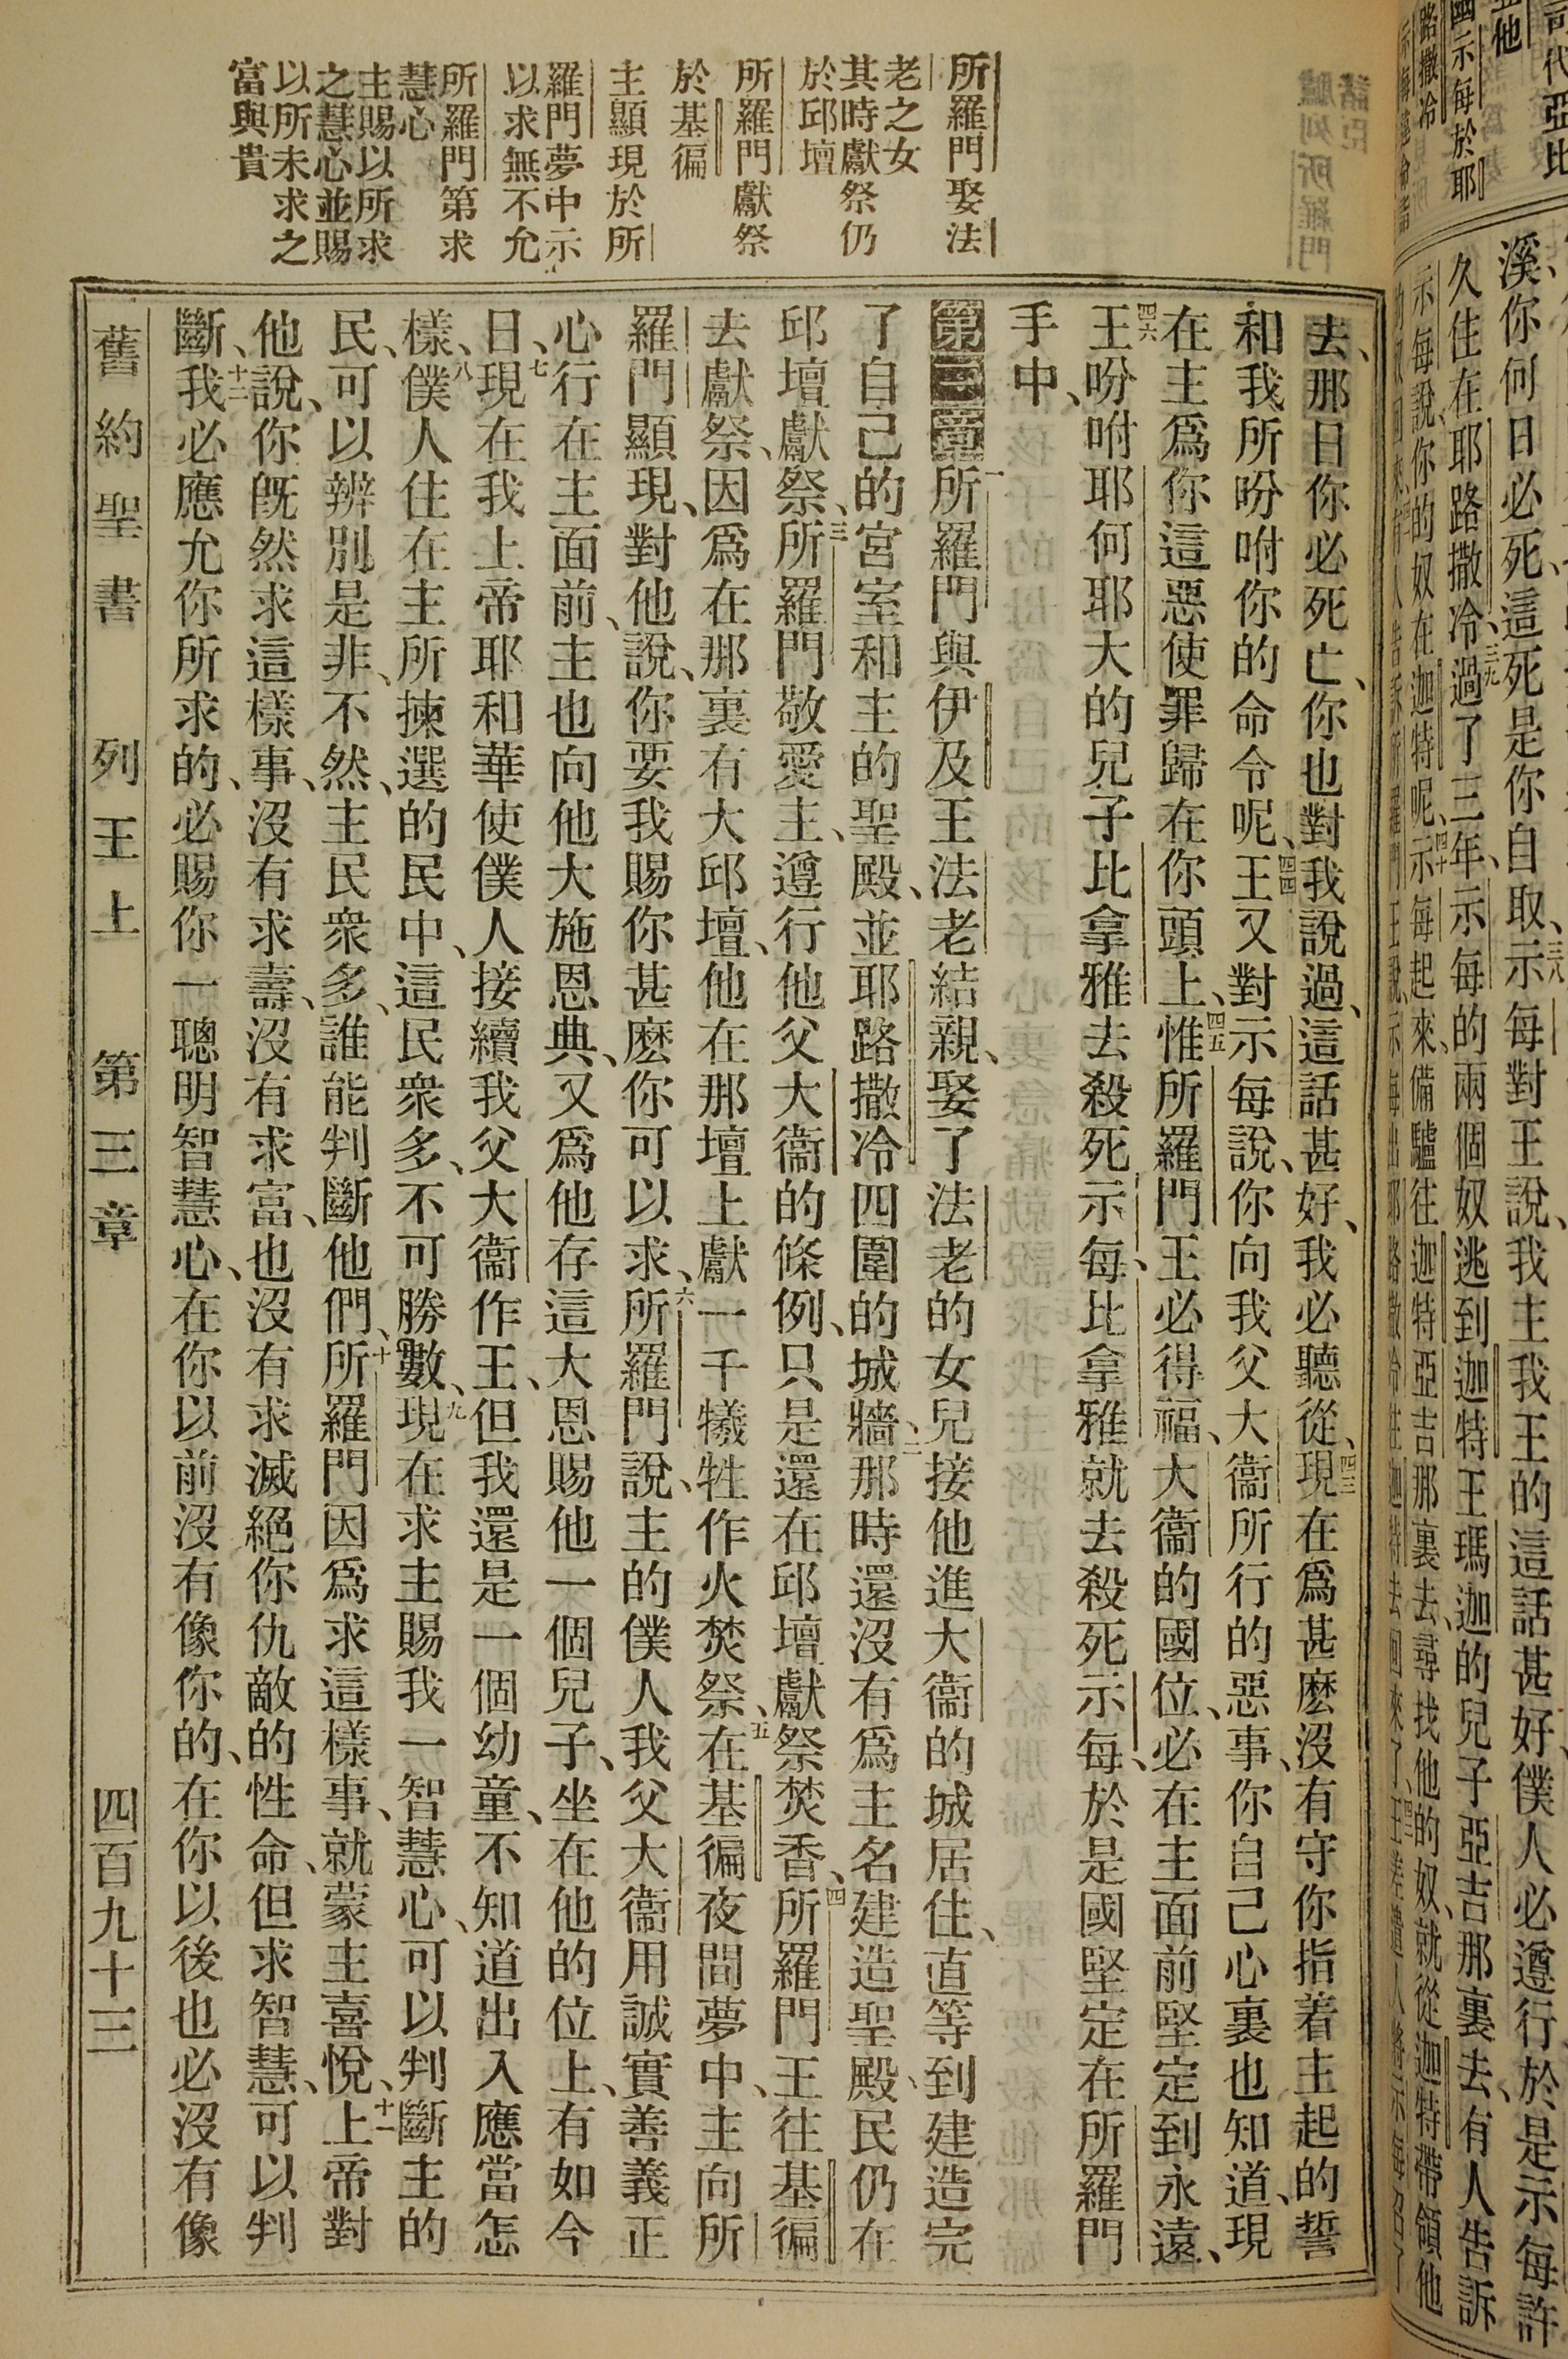 溪、你何日必死、這死是你自取、三八示每對王說、我主我王的這話甚好、僕人必遵行、於是示每許
久住在耶路撒冷、三九過了三年、示每的兩個奴逃到迦特王瑪迦的兒子亞吉那裏去、有人告訴
示每說、你的奴在迦特呢、四十示每起來、備驢往迦特亞吉那裏去、尋找他的奴、就從迦特帶領他
所羅門娶法
老之女
其時獻祭仍
於邱壇
所羅門獻祭
於基徧
主顯現於所
羅門夢中示
以求無不允
所羅門第求
慧心
主賜以所求
之慧心並賜
以所未求之
富與貴
去、那日你必死亡、你也對我說過、這話甚好、我必聽從、四三現在爲甚麽沒有守你指着主起的誓
和我所吩咐你的命令呢、四四王又對示每說、你向我父大衞所行的惡事、你自己心裏也知道、現
在主爲你這惡使罪歸在你頭上、四五惟所羅門王必得福、大衞的國位、必在主面前堅定到永遠、
四六王吩咐耶何耶大的兒子比拿雅去殺死示每、比拿雅就去殺死示每、於是國堅定在所羅門
手中、
第三章一所羅門與伊及王法老結親、娶了法老的女兒接他進大衞的城居住、直等到建造完
了自己的宮室和主的聖殿、並耶路撒冷四圍的城牆、二那時還沒有爲主名建造聖殿、民仍在
邱壇獻祭、三所羅門敬愛主、遵行他父大衞的條例、只是還在邱壇獻祭焚香、四所羅門王往基徧
去獻祭、因爲在那裏有大邱壇、他在那壇上獻一千犧牲作火焚祭、五在基徧夜間夢中、主向所
羅門顯現、對他說、你要我賜你甚麽你可以求、六所羅門說、主的僕人我父大衞用誠實善義正
心行在主面前、主也向他大施恩典、又爲他存這大恩賜他一個兒子、坐在他的位上、有如今
日、七現在我上帝耶和華使僕人接續我父大衞作王、但我還是一個幼童、不知道出入應當怎
樣、八僕人住在主所揀選的民中、這民衆多、不可勝數、九現在求主賜我一智慧心、可以判斷主的
民、可以辨別是非、不然、主民衆多、誰能判斷他們、十所羅門因爲求這樣事、就蒙主喜悅、十一上帝對
他說、你旣然求這樣事、沒有求壽、沒有求富、也沒有求滅絕你仇敵的性命、但求智慧、可以判
斷、十二我必應允你所求的、必賜你一聰明智慧心、在你以前沒有像你的、在你以後也必沒有像
舊約聖書 列王上 第三章 四百九十三